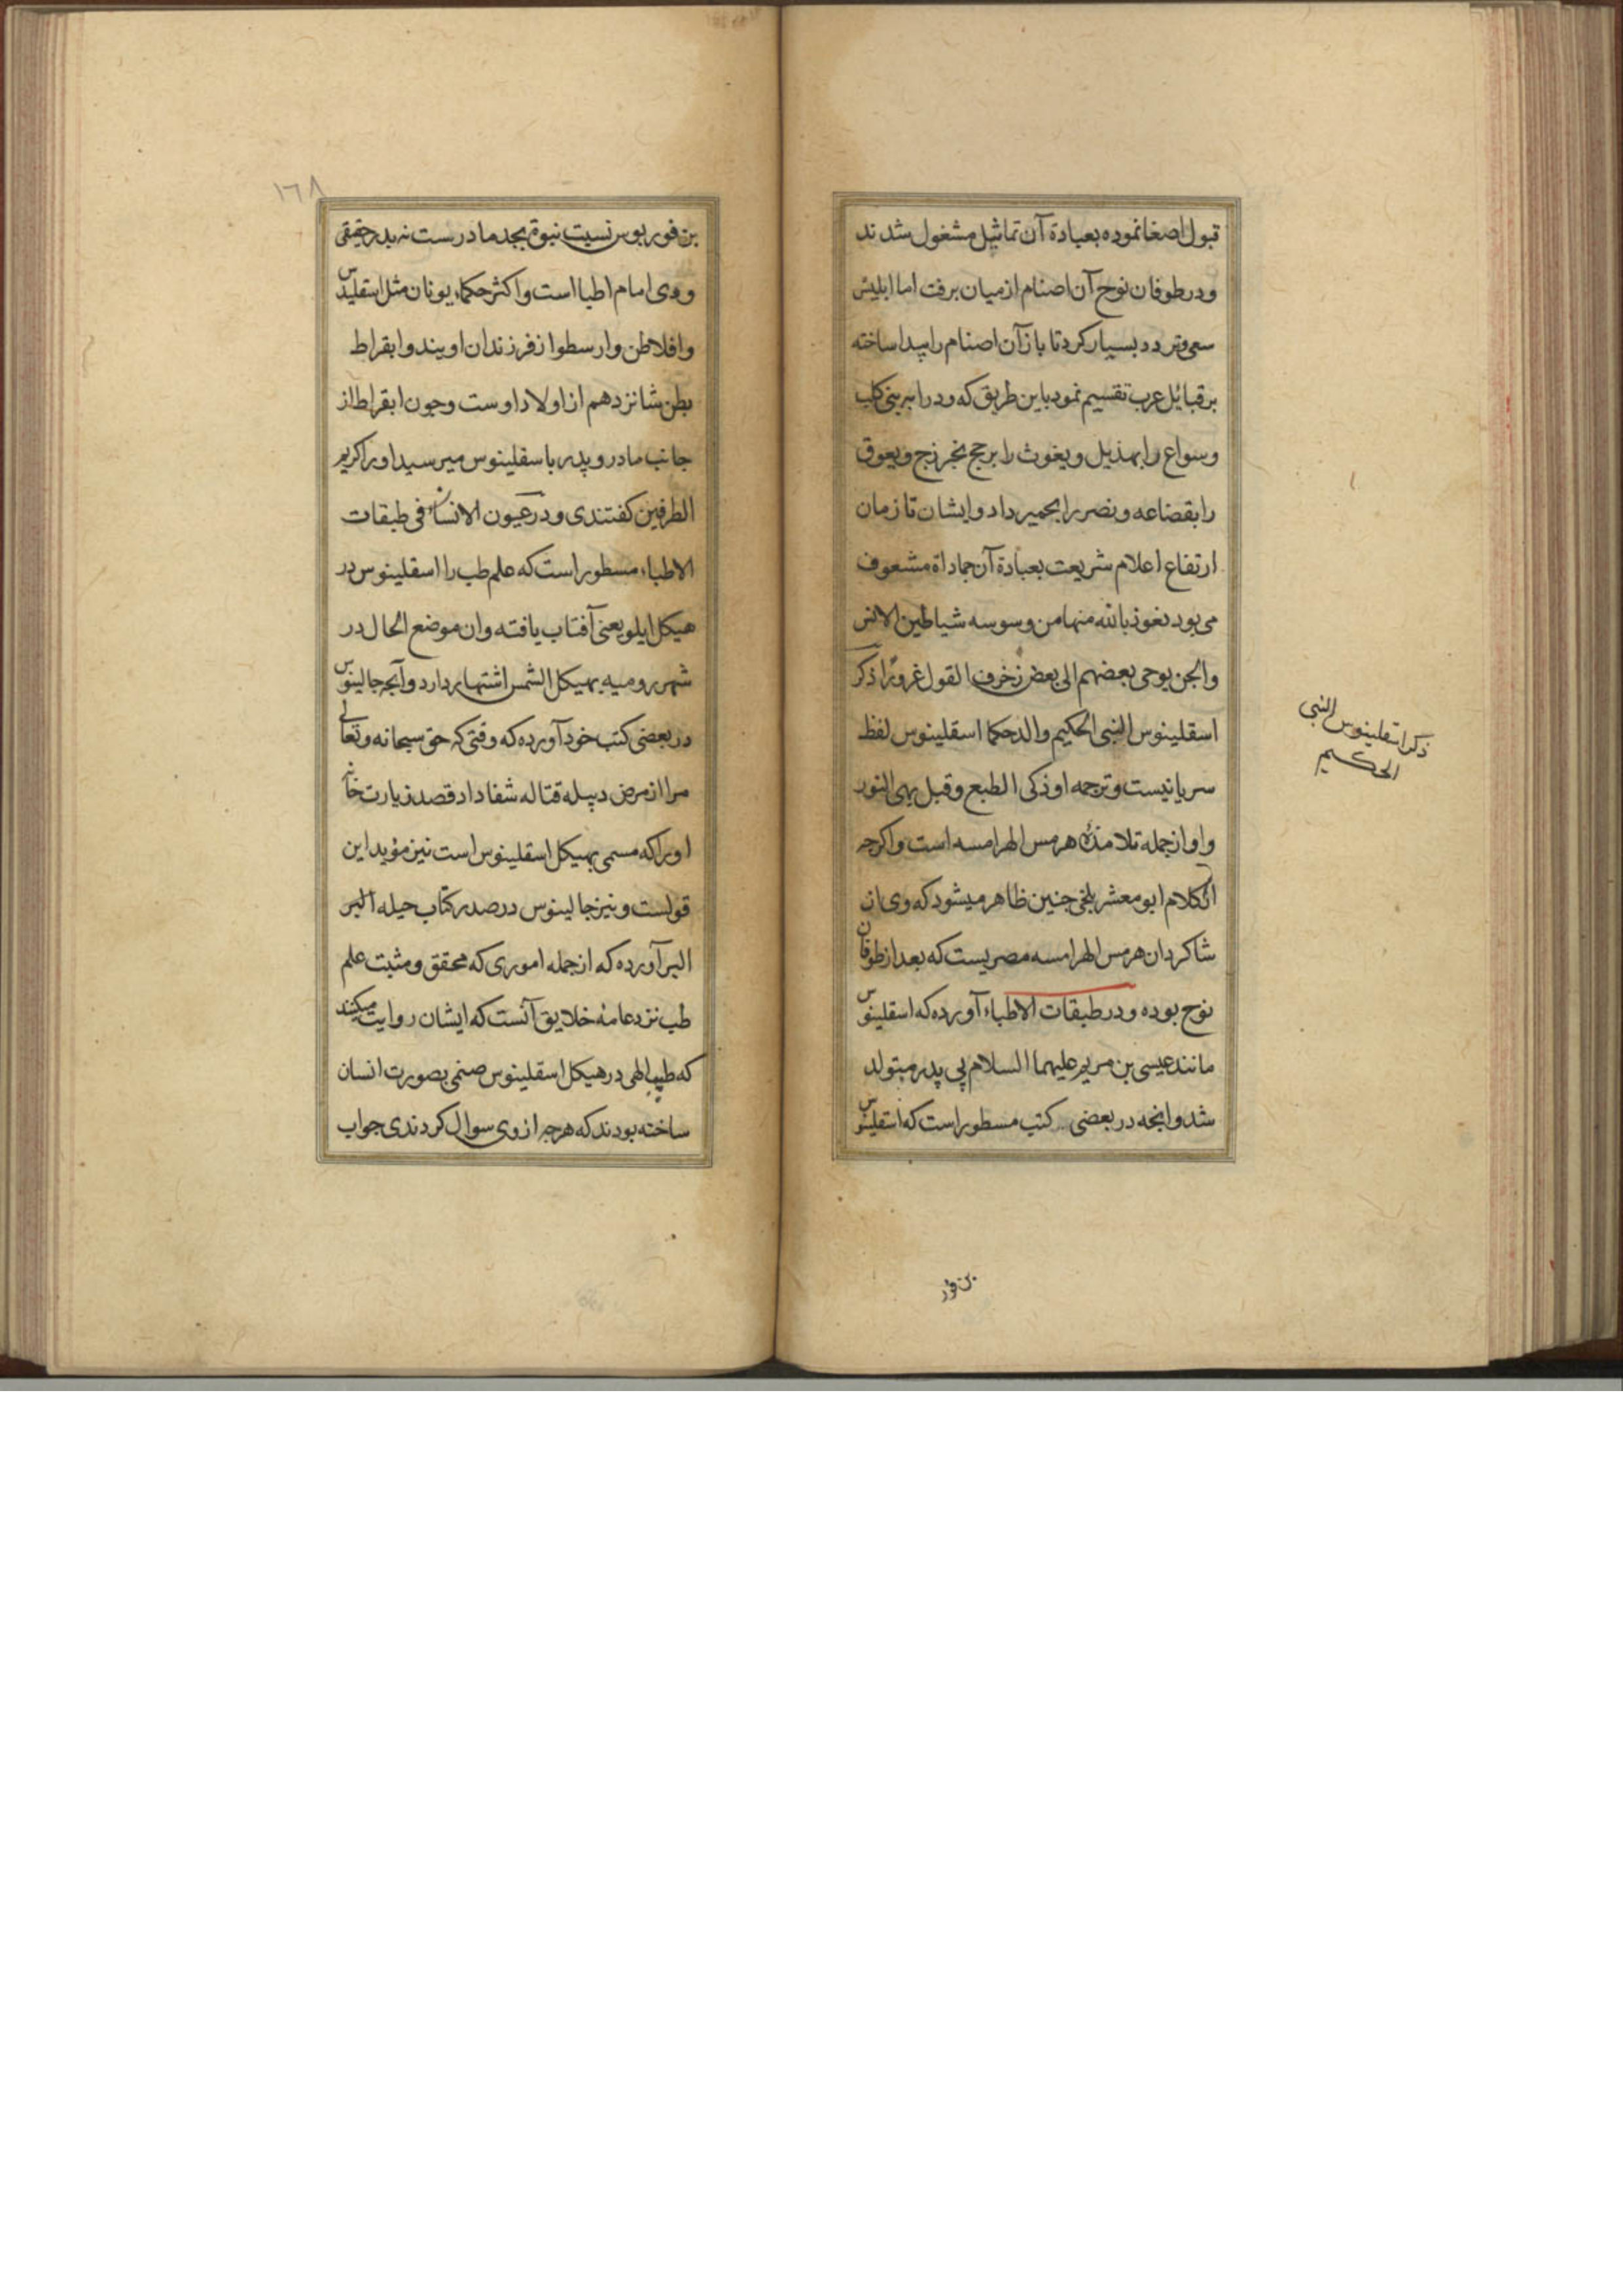 قبول اصغا نموده بعبادة آن تماثیل مشغول شدند
ودر طوفان نوح آن اصنام از میان برفت اما ابلیس
سعی وتردد بسیار کرد تا باز آن اصنام را پیدا ساخته
بر قبائل عرب تقسیم نمود باین طریق که ود را ببنی کلب
وسواع را بهذیل ویغوث را ویعوق
را بقضاعه ونصر را بحمیر داد وایشان تا زمان
ارتفاع اعلام شریعت بعبادة آن جماداة مشعوف
می بود نعوذ بالله منها من وسوسه شیاطین الانس
والجن یوحی بعضهم الی بعض زخرف القول غرورًا ذکر
اسقلینوس النبی الحکیم والد حکما اسقلینوس لفظ
سریانیست وترجمه او ذکی الطبع وقیل بهی النور
واو از جمله تلامذهٔ هرمس الهرامسه است واکرجه
از کلام ابو معشر بلخی جنین ظاهر میشود که وی از
شاکردان هرمس الهرامسه مصریست که بعد از طوفان
نوح بوده ودر طبقات الاطباء آورده که اسقلینوس
مانند عیسی بن مریم علیهما السلام بی پدر متولد
شد وانجه در بعضی کتب مسطور است که اسقلینوس
ذکر اسقلینوس النبی
الحکیم
بن فور
١٦٨
بن فوریوس نسبت نبوة بجد مادرست نه بدر حقیقی
ووی امام اطبا است واکثر حکماء یونان مثل اسقلیدس
وافلاطن وارسطو از فرزندان اویند وابقراط
بطن شانزدهم از اولاد اوست وجون ابقراط از
جانب مادر وپدر باسقلینوس میرسید اورا کریم
الطرفین کفتندی ودر عیون الانساء فی طبقات
الاطباء مسطور است که علم طب را اسقلینوس در
هیکل ایلو یعنی آفتاب یافته وان موضع الحال در
شهر رومیه بهیکل الشمس اشتهار دارد وآنجه جالینوس
در بعضی کتب خود آورده که وقتی که حق سبحانه وتعالی
مرا از مرض دبیله قتاله شفا داد قصد زیارت خانهٔ
اورا که مسمی بهیکل اسقلینوس است نیز مؤید این
قولست ونیز جالینوس در صدر کتاب حیله البر
البر آورده که از جمله اموری که محقق ومثبت علم
طب نزد عامهٔ خلایق آنست که ایشان روایت میکنند
که طب الهی در هیکل اسقلینوس صنمی بصورت انسان
ساخته بودند که هرجه از وی سوال کردندی جواب